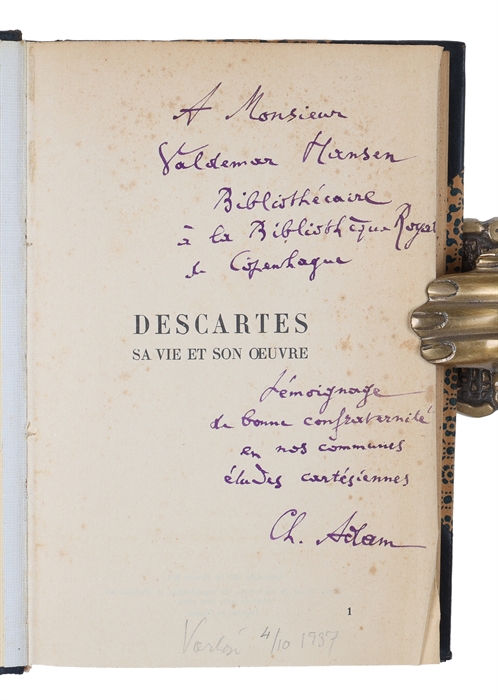 A Monsieur
Valdemar Hansen
Bibliothécaire
à la Bibliothèque Royale
de Copenhague
DESCARTES
SA VIE ET SON ŒUVRE
Témoignage
de bonne confraternité
en nos communes
études cartésiennes
Ch. Adam
1
4/10 1937